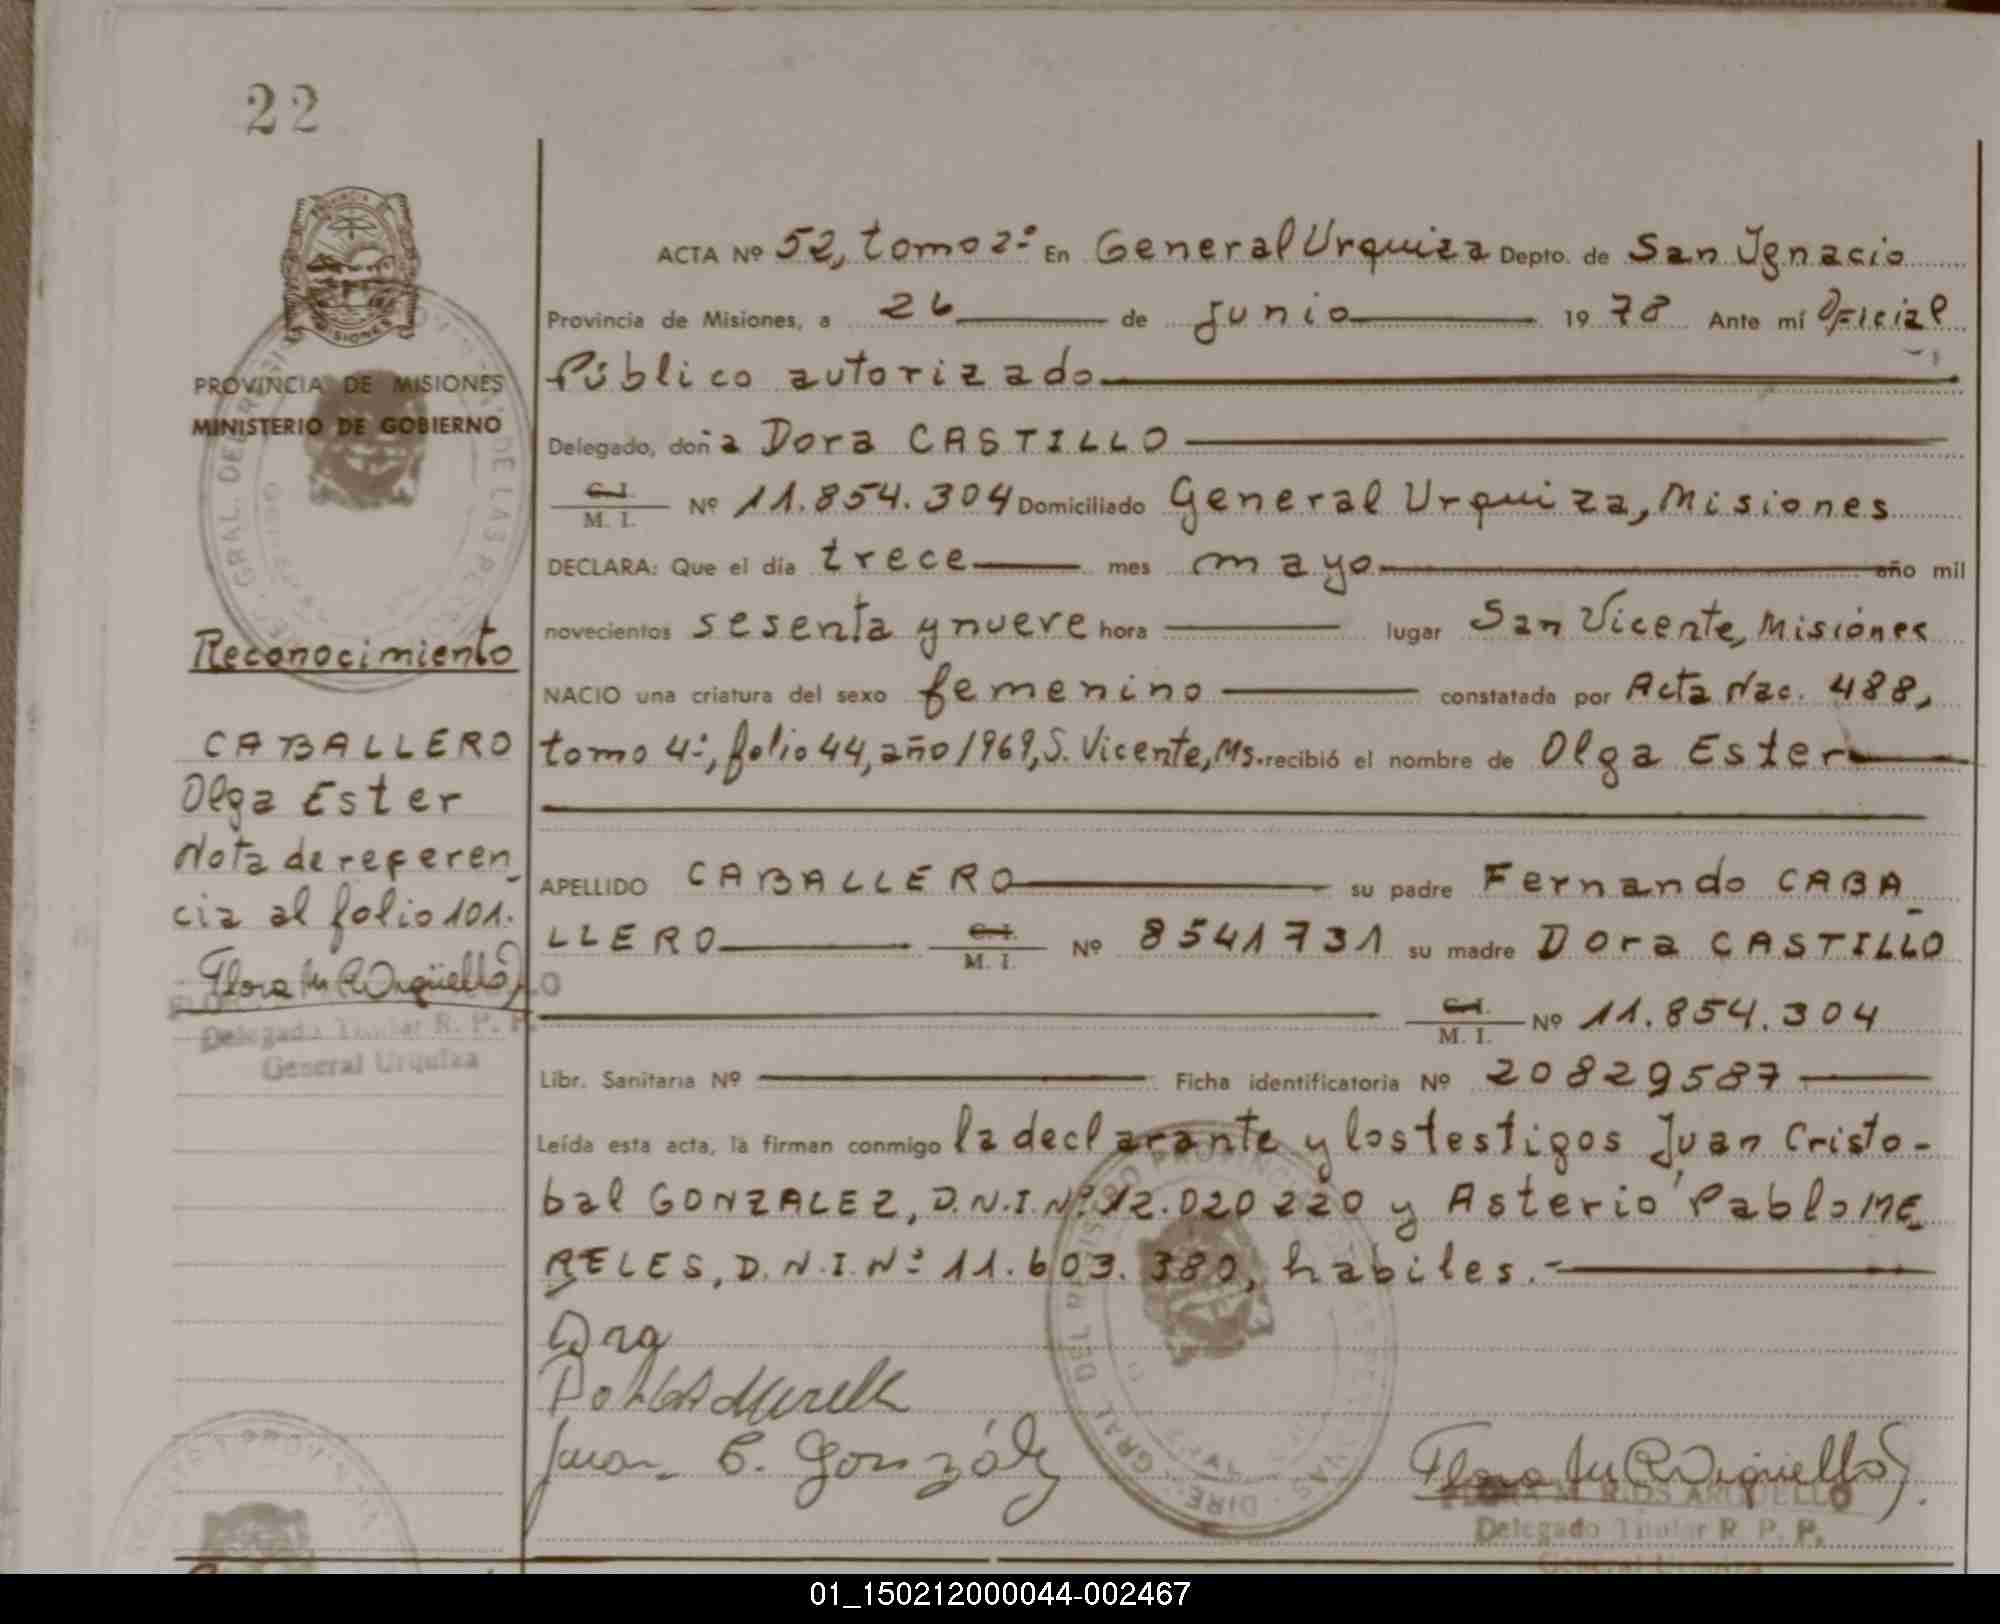 22
PROVINCIA DE MISIONES
MINISTERIO DE GOBIERNO
Reconocimiento
CABALLERO
Olga Ester
Nota de referen
cia al folio 101.
Flora M R Argüello
Delegado Titular R. P. P.
General Urquiza
ACTA Nº 52, tomo 2º En General Urquiza Depto. de San Ignacio
Provincia de Misiones, a 26 de junio 1978 Ante mí Oficial
Público autorizado
Delegado, doña Dora CASTILLO
C. I. / M. I. Nº 11.854.304 Domiciliado General Urquiza, Misiones
DECLARA: Que el día trece mes mayo año mil
novecientos sesenta y nueve hora lugar San Vicente, Misiones
NACIO una criatura del sexo femenino constatada por Acta Nac. 488,
tomo 4º, folio 44, año 1969, S. Vicente, Ms. recibió el nombre de Olga Ester
APELLIDO CABALLERO su padre Fernando CABA
LLERO C. I. / M. I. Nº 8541731 su madre Dora CASTILLO
C. I. / M. I. Nº 11.854.304
Libr. Sanitaria Nº Ficha identificatoria Nº 20829587
Leída esta acta, la firman conmigo la declarante y los testigos Juan Cristo-
bal GONZALEZ, D.N.I.Nº 12.020220 y Asterio Pablo ME
RELES, D.N.I.Nº 11.603.380, habiles.-
Juan C. González
Flora M R Argüello
FLORA M. RIOS ARGUELLO
Delegado Titular R. P. P.
General Urquiza
01_150212000044-002467